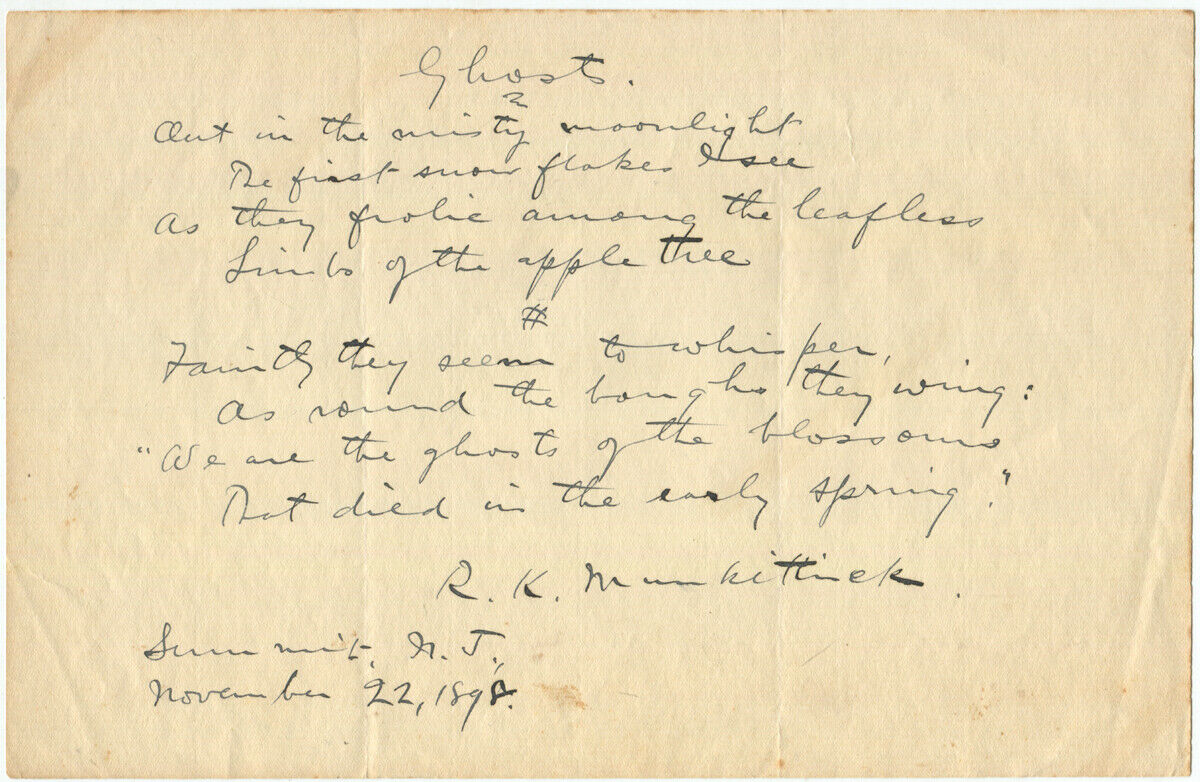 Ghosts.
Out in the misty moonlight
The first snow flakes I see
As they frolic among the leafless
Limbs of the apple tree
#
Faintly they seem to whisper,
As round the boughs they wing:
"We are the ghosts of the blossoms
That died in the early spring."
R. K. Munkittrick.
Summit, N. J.,
November 22, 1898.